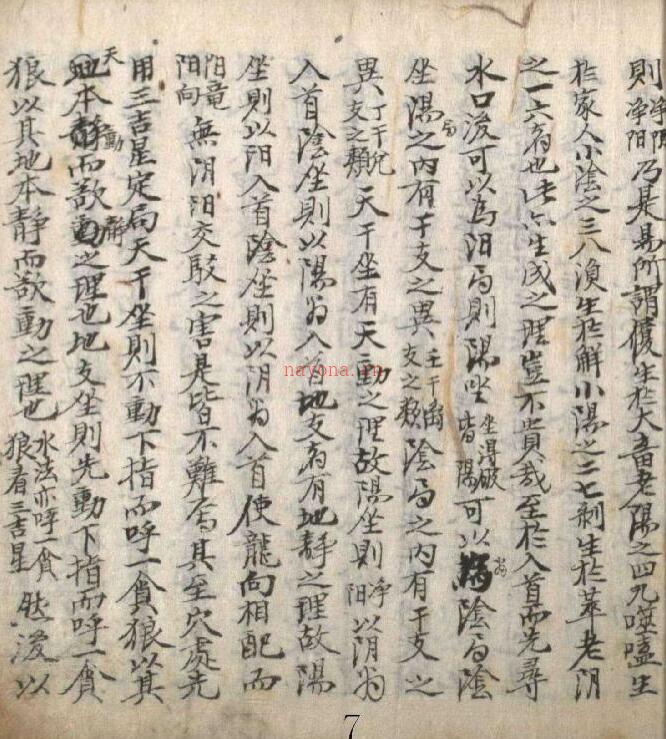 則淨陰淨阳乃是易所謂復生於大畜老陽之四九噬嗑生
於家人小陰之三八渙生於解小陽之二七剝生於萃老阴
之一六者也此亦生成之理豈不貴哉至於入首而先尋
水口後可以為阳局則陽坐坐得破皆陽可以為陰局陰
坐陽局之內有干支之異壬干子支之類陰局之內有干支之
異丁干兌支之類天干坐有天動之理故陽坐則淨阳以阴為
入首陰坐則以陽為入首地支者有地靜之理故陽
坐則以阳入首陰坐則以阴為入首使龍向相配而
阳竜阳向無阴阳交駁之害是皆不難焉其至穴處先
用三吉星定局天干坐則不動下指而呼一貪狼以其
天本動而欲靜之理也地支坐則先動下指而呼一貪
狼以其地本靜而欲動之理也水法亦呼一貪狼看三吉星然後以
nayona.cn
7